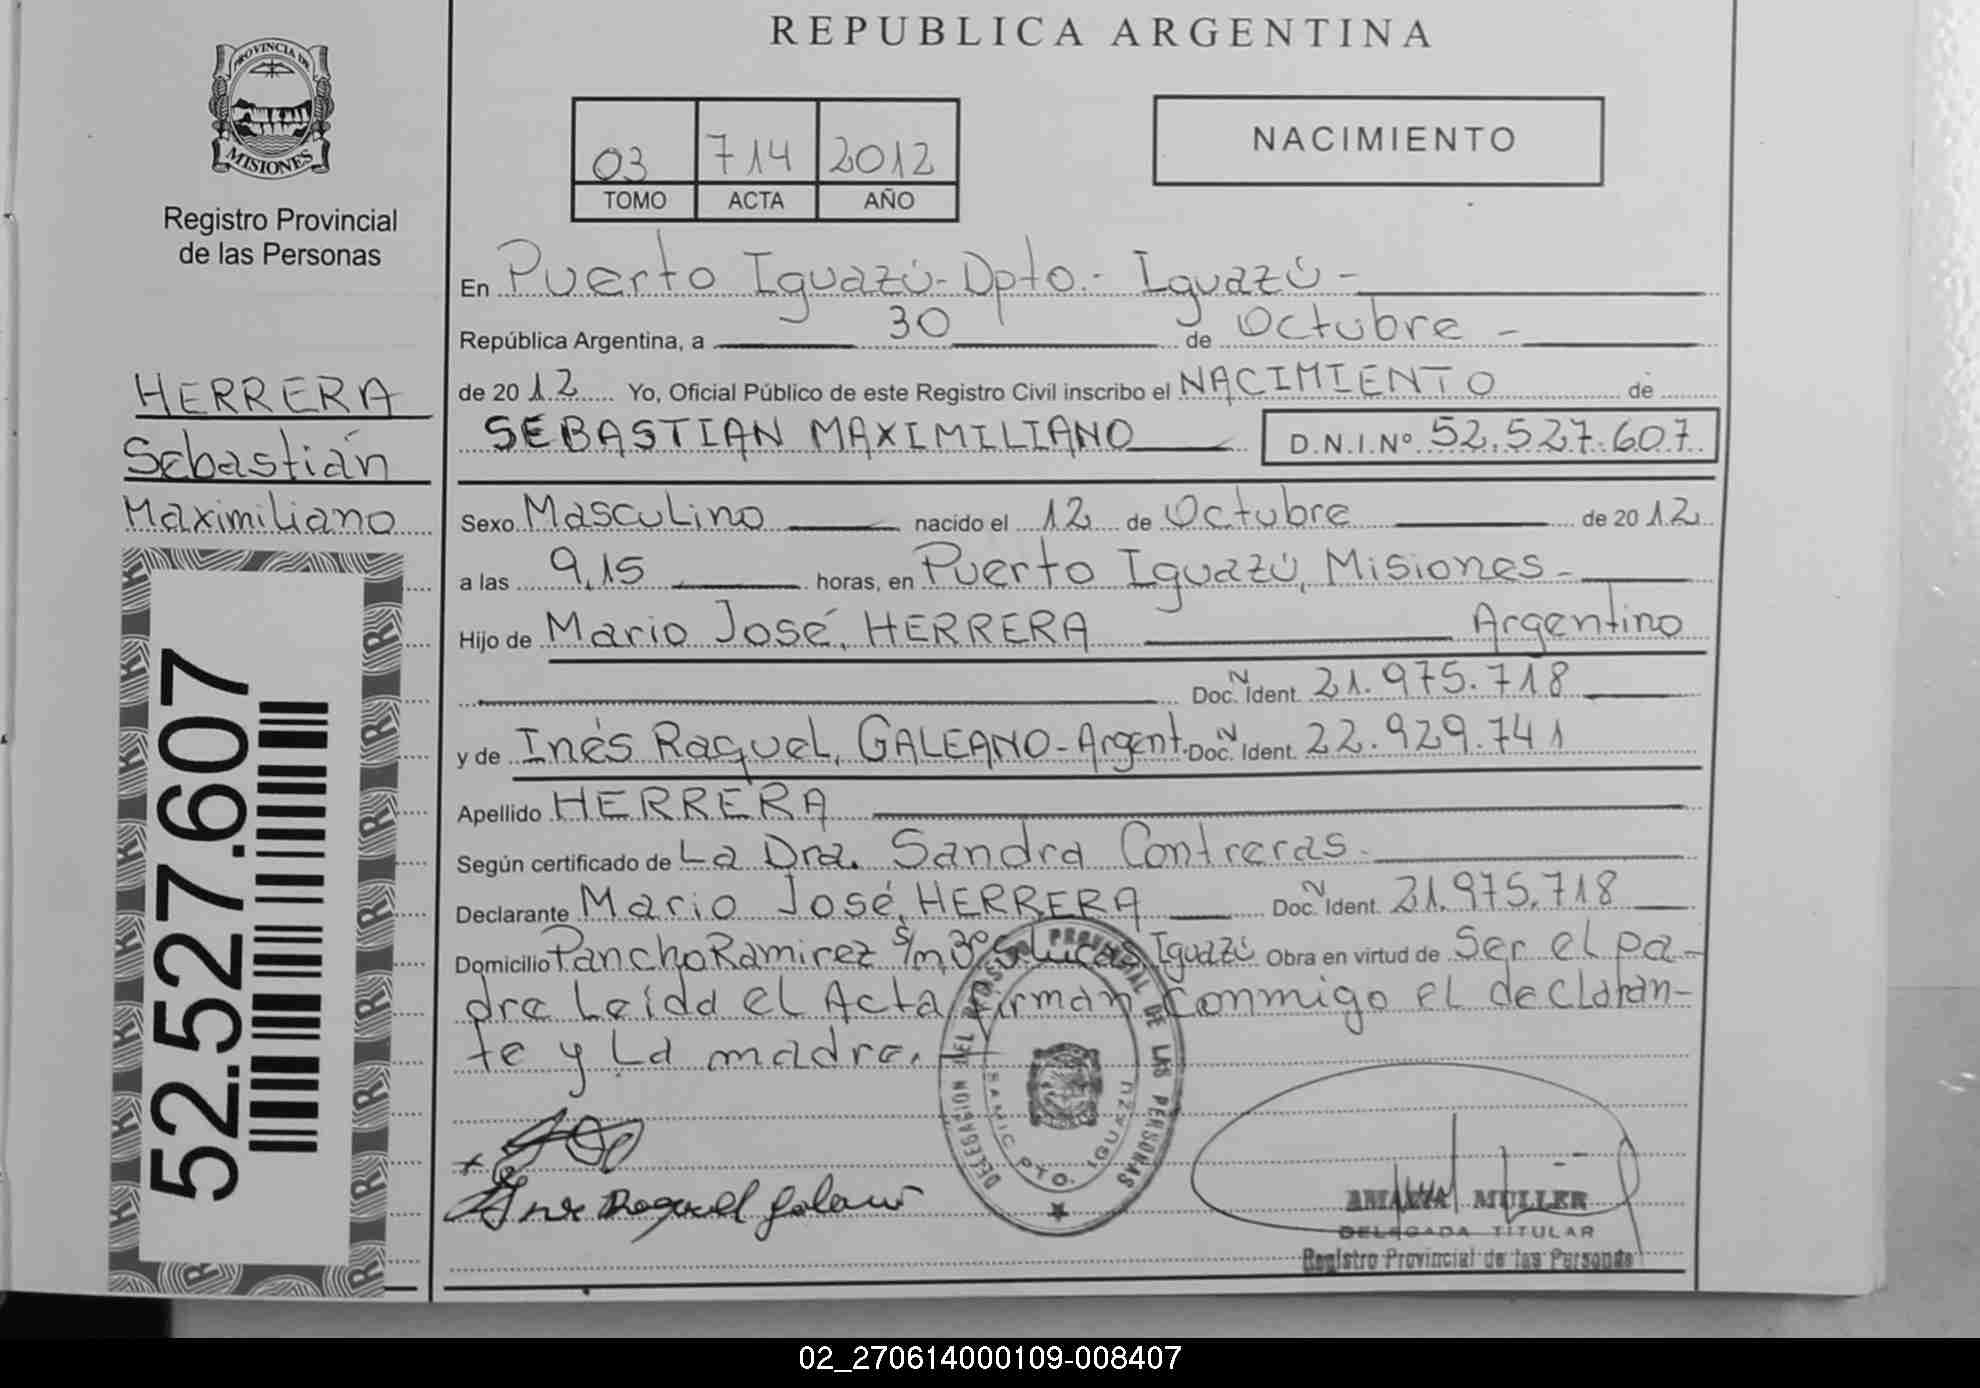 PROVINCIA DE
MISIONES
Registro Provincial
de las Personas
HERRERA
Sebastián
Maximiliano
52.527.607
REPUBLICA ARGENTINA
03 714 2012
TOMO ACTA AÑO
NACIMIENTO
En Puerto Iguazú-Dpto.- Iguazú-
República Argentina, a 30 de Octubre -
de 2012 Yo, Oficial Público de este Registro Civil inscribo el NACIMIENTO de
SEBASTIAN MAXIMILIANO D.N.I.Nº 52.527.607.
Sexo Masculino nacido el 12 de Octubre de 2012
a las 9,15 horas, en Puerto Iguazú, Misiones-
Hijo de Mario José, HERRERA Argentino
Doc. N Ident. 21.975.718
y de Inés Raquel, GALEANO-Argent. Doc. N Ident. 22.929.741
Apellido HERRERA
Según certificado de La Dra. Sandra Contreras.
Declarante Mario José, HERRERA Doc. N Ident. 21.975.718
Domicilio Pancho Ramirez s/n, 30 Iguazú Obra en virtud de Ser el pa-
dre Leida el Acta, Firman Conmigo el declaran-
te y La madre.
DELEGACION DEL REGISTRO PROVINCIAL DE LAS PERSONAS
SAMIC PTO. IGUAZU
Raquel Galeano
MULLER
DELEGADA TITULAR
Registro Provincial de las Personas
02_270614000109-008407